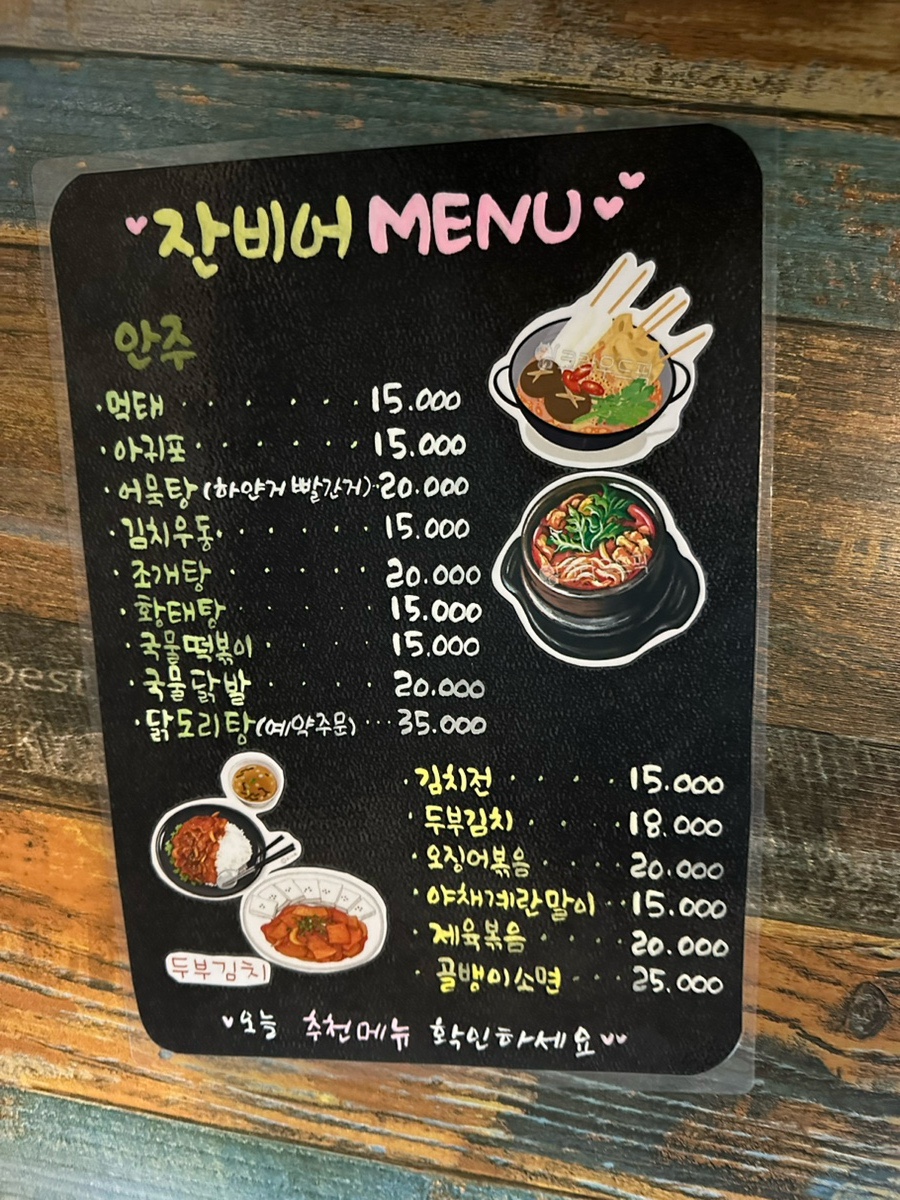 잔비어 MENU
안주
·먹태 · · · · · · 15.000
·아귀포 · · · · · · 15.000
·어묵탕(하얀거 빨간거)·20.000
·김치우동 · · · · · 15.000
·조개탕 · · · · · 20.000
·황태탕 · · · · · 15.000
·국물떡볶이 · · · · 15.000
·국물닭발 · · · · 20.000
·닭도리탕(예약주문)···35.000
·김치전 · · · · 15.000
·두부김치 · · · 18.000
·오징어볶음 · · · 20.000
·야채계란말이 ··15.000
·제육볶음 · · · · 20.000
·골뱅이소면 ···25.000
두부김치
오늘 추천메뉴 확인하세요